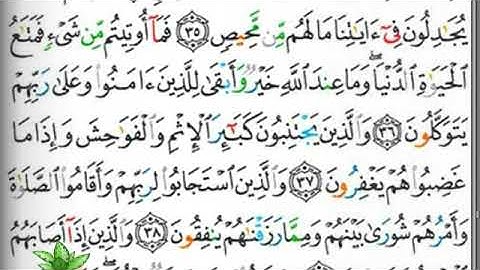 يُجَٰدِلُونَ فِىٓ ءَايَٰتِنَا مَا لَهُم مِّن مَّحِيصٍ ٣٥ فَمَآ أُوتِيتُم مِّن شَىْءٍ فَمَتَٰعُ
ٱلْحَيَوٰةِ ٱلدُّنْيَا ۖ وَمَا عِندَ ٱللَّهِ خَيْرٌ وَأَبْقَىٰ لِلَّذِينَ ءَامَنُوا۟ وَعَلَىٰ رَبِّهِمْ
يَتَوَكَّلُونَ ٣٦ وَٱلَّذِينَ يَجْتَنِبُونَ كَبَٰٓئِرَ ٱلْإِثْمِ وَٱلْفَوَٰحِشَ وَإِذَا مَا
غَضِبُوا۟ هُمْ يَغْفِرُونَ ٣٧ وَٱلَّذِينَ ٱسْتَجَابُوا۟ لِرَبِّهِمْ وَأَقَامُوا۟ ٱلصَّلَوٰةَ
وَأَمْرُهُمْ شُورَىٰ بَيْنَهُمْ وَمِمَّا رَزَقْنَٰهُمْ يُنفِقُونَ ٣٨ وَٱلَّذِينَ إِذَآ أَصَابَهُمُ